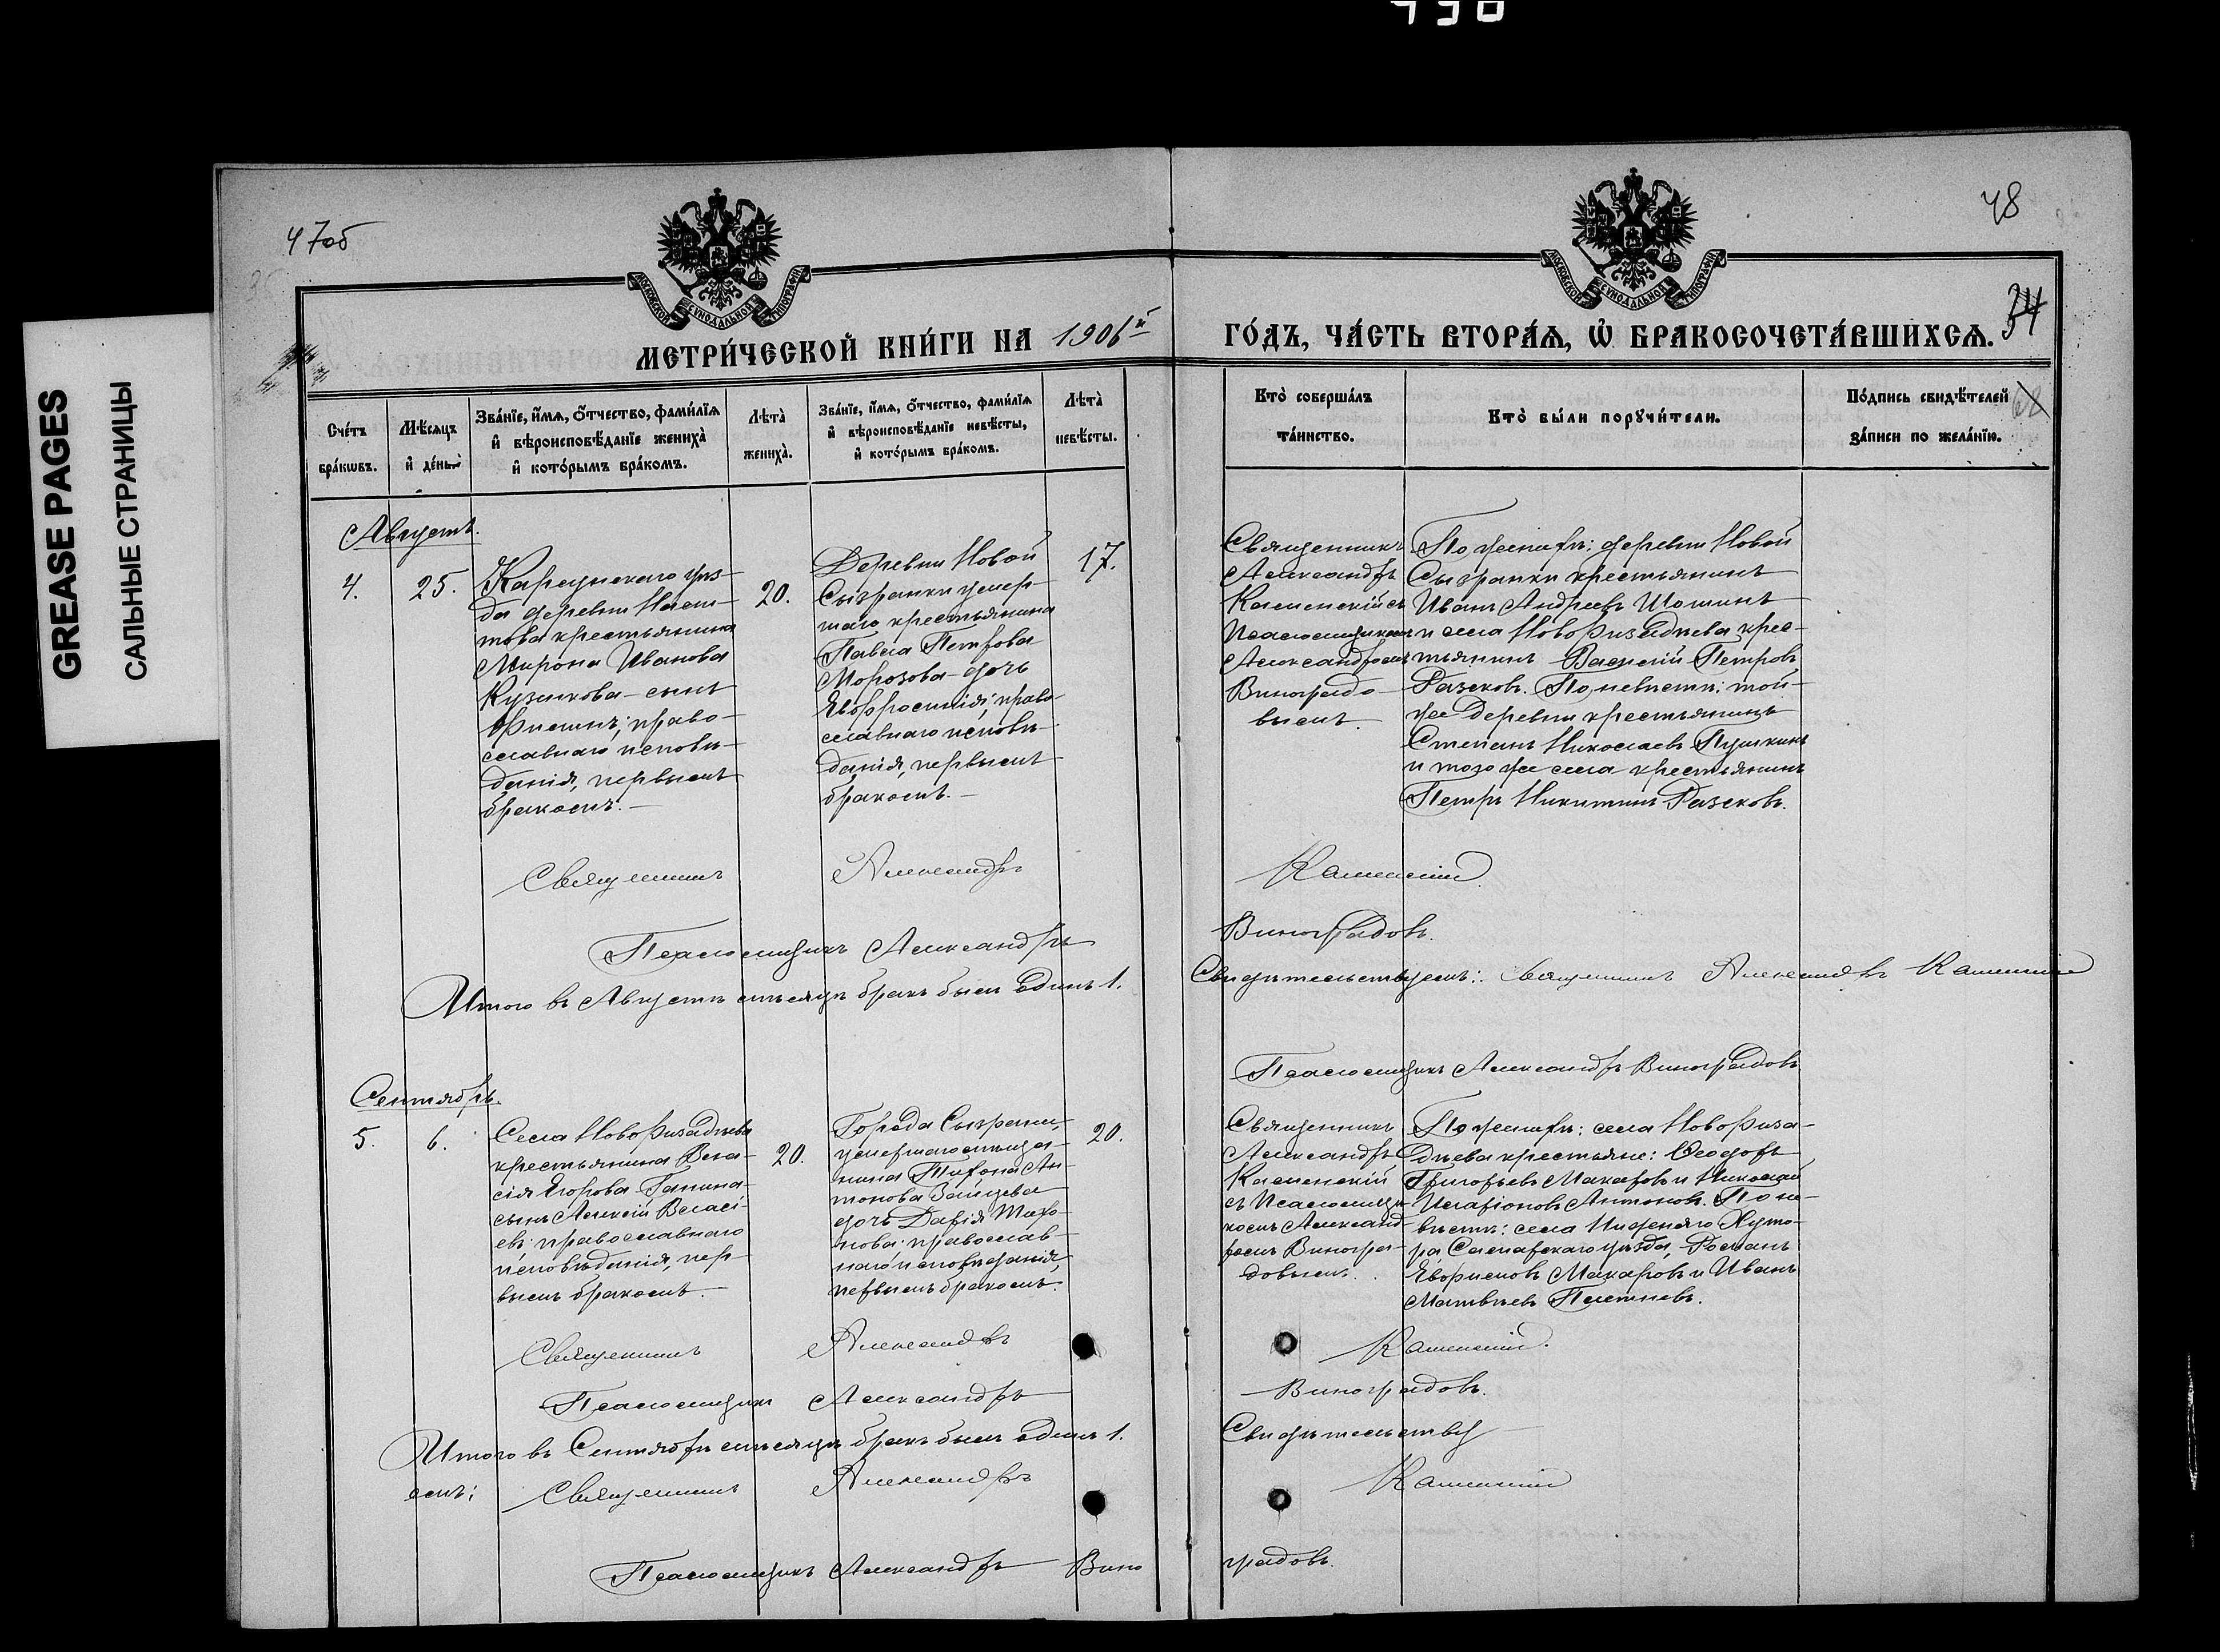 430
GREASE PAGES
САЛЬНЫЕ СТРАНИЦЫ
47об
48
МОСКОВСКОЙ СѴНОДАЛЬНОЙ ТИПОГРАФІИ
МОСКОВСКОЙ СѴНОДАЛЬНОЙ ТИПОГРАФІИ
МЕТРИ́ЧЕСКОЙ КНИ́ГИ НА 1906й
ГО́ДЪ, ЧА́СТЬ ВТОРА́Ѧ, Ѽ БРАКОСОЧЕТА́ВШИХСѦ.
34
Сче́тъ
бра́кѡвъ.
Мѣ́сяцъ
и де́нь.
Зва́нїе, и́мѧ, о́тчество, фами́лїѧ
и҆ вѣроисповѣ́данїе жениха̀
и҆ кото́рымъ бра́комъ.
Лѣта̀
жениха̀.
Зва́нїе, и́мѧ, о́тчество, фами́лїѧ
и҆ вѣроисповѣ́данїе невѣ́сты,
и҆ кото́рымъ бра́комъ.
Лѣта̀
невѣ́сты.
Кто̀ соверша́лъ
та́инство.
Кто̀ бы́ли порꙋчи́тели.
По́дпись свидѣ́телей
за́писи по жела́нїю.
68
Августъ.
4.
25.
Карсунскаго уѣз-
да деревни
крестьянина
Мирона Иванова
Кузинкова - сынъ
право-
славнаго исповѣ-
данія, первымъ
бракомъ. -
20.
Деревни Новой
Сызранки умер-
шаго крестьянина
Павла Петрова
Морозова - дочь
Евфросинія; право-
славнаго исповѣ-
данія, первымъ
бракомъ. -
17.
Священникъ
Александръ
Каменскій съ
Псаломщикомъ
Александромъ
Виноградо-
вымъ.
По женихѣ: деревни Новой
Сызранки крестьянинъ
Иванъ Андреевъ Шошинъ
и села Новоризаднева крес-
тьянинъ Василій Петровъ
Разсковъ. По невѣстѣ: той-
же деревни крестьянинъ
Степанъ Николаевъ Пушкинъ
и того же села крестьянинъ
Петръ Никитинъ Разсковъ.
Священникъ Александръ Каменскій
Псаломщикъ Александръ Виноградовъ.
Итого въ Августѣ мѣсяцѣ бракъ былъ одинъ 1. Свидѣтельствуемъ: Священникъ Александръ Каменскій
Псаломщикъ Александръ Виноградовъ
Сентябрь.
5.
6.
Села Новоризаднева
крестьянина Вла-
сія Егорова Ганина
сынъ Алексій Власі-
евъ: православнаго
исповѣданія, пер-
вымъ бракомъ. -
20.
Города Сызрани,
умершаго мѣща-
нина Тифона Ан-
тонова Зайцева
дочь Дарія Тифо-
нова: православ-
наго исповѣданія,
первымъ бракомъ.
20.
Священникъ
Александръ
Каменскій
съ Псаломщи-
комъ Александ-
ромъ Виногра-
довымъ.
По женихѣ: села Новориза-
днева крестьяне: Ѳеодоръ
Григорьевъ Макаровъ и Николай
Иларіоновъ Антоновъ. По не-
вѣстѣ: села Нижняго Хуто-
ра Самарскаго уѣзда, Романъ
Макаровъ и Иванъ
Матвѣевъ Плетневъ.
Священникъ Александръ Каменскій.
Псаломщикъ Александръ Виноградовъ.
Итого въ Сентябрѣ мѣсяцѣ бракъ былъ одинъ 1. Свидѣтельству-
емъ: Священникъ Александръ Каменскій
Псаломщикъ Александръ Виноградовъ.